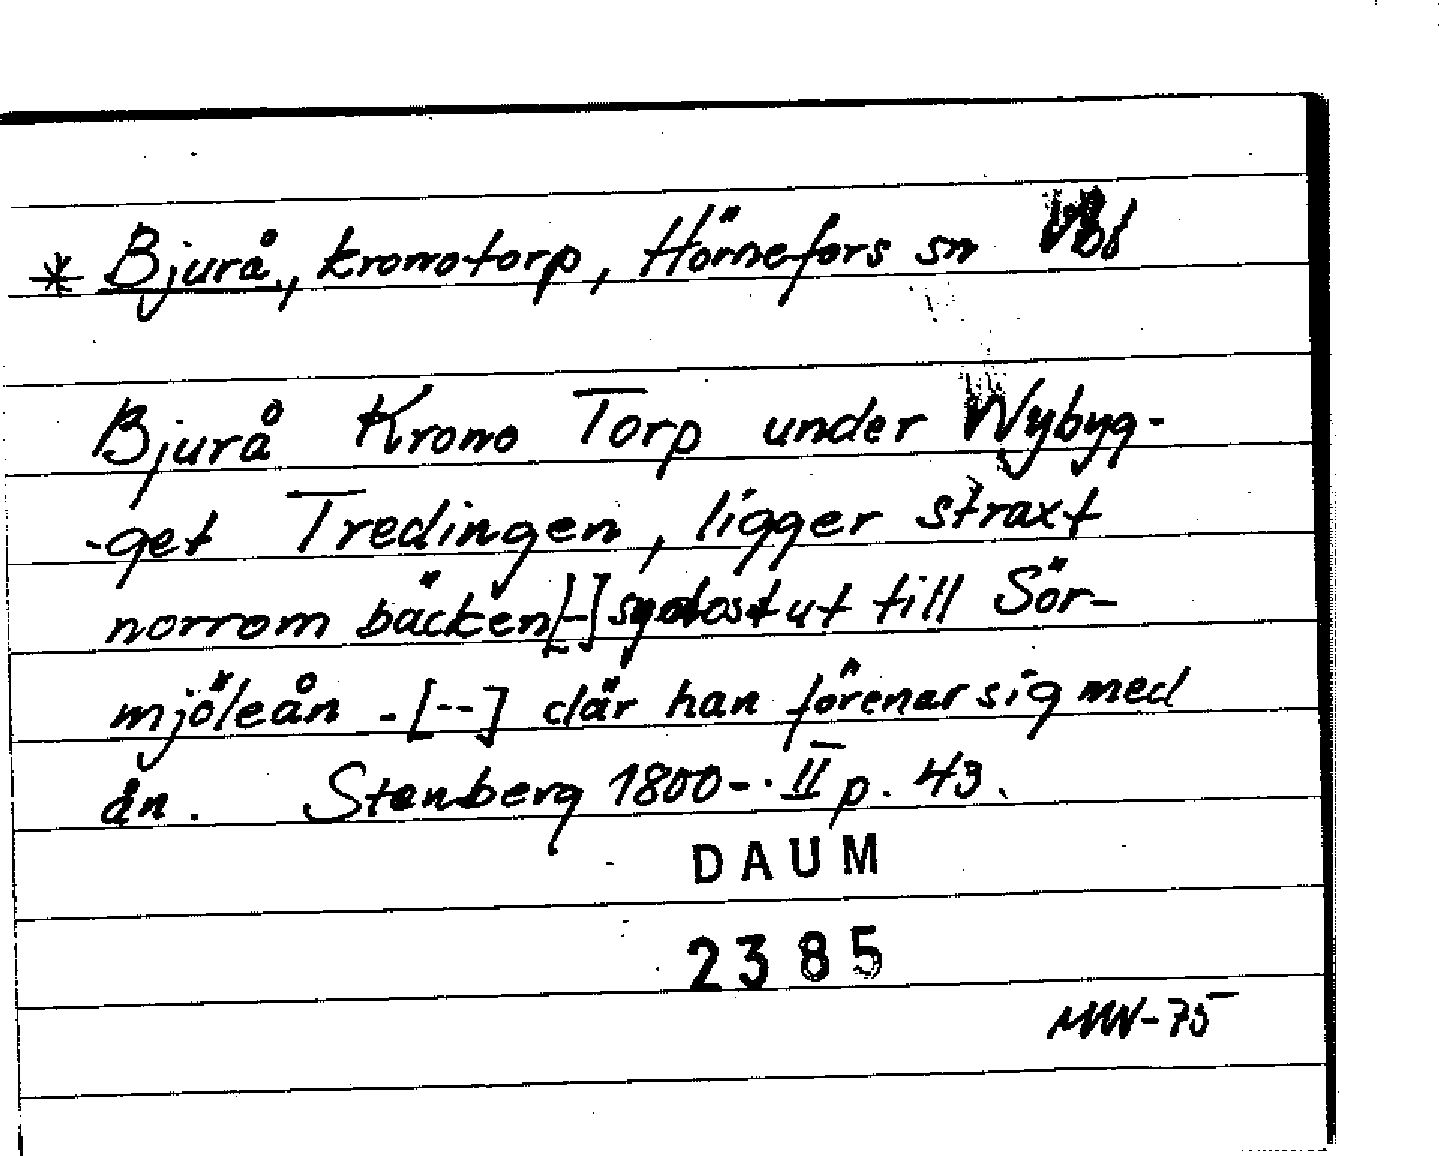 * Bjurå, kronotorp, Hörnefors sn Vbt
Bjurå Krono Torp under Nybyg-
-get Tredingen, ligger straxt
norrom bäcken [-] sydost ut till Sör-
mjöleån - [--] där han förenar sig med
ån. Stenberg 1800-. II p. 43.
DAUM
2385
MW-75